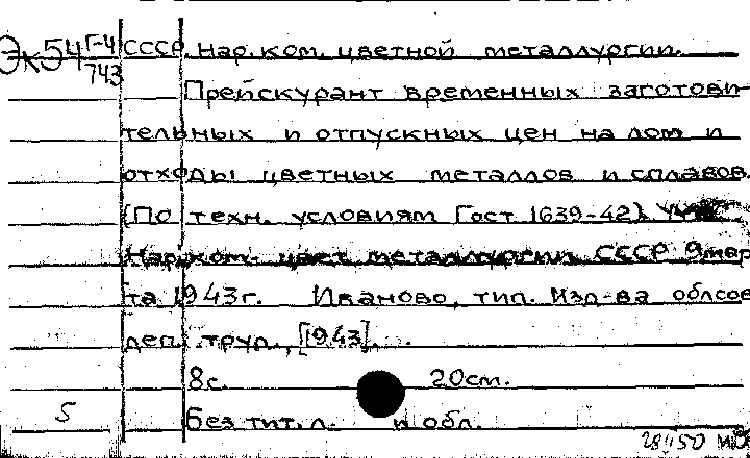 Эк54 Г-4 СССР. Нар.ком. цветной металлургии.
743
Прейскурант временных заготови-
тельных и отпускных цен на лом и
отходы цветных металлов и сплавов.
(По техн. условиям Гост 1639-42)
Нар.ком. цвет. металлургии СССР 9 мар
та 1943г. Иваново, тип. Изд-ва облсов
деп. труд., [1943].
8с. 20см.
5 Без тит. л. и обл.